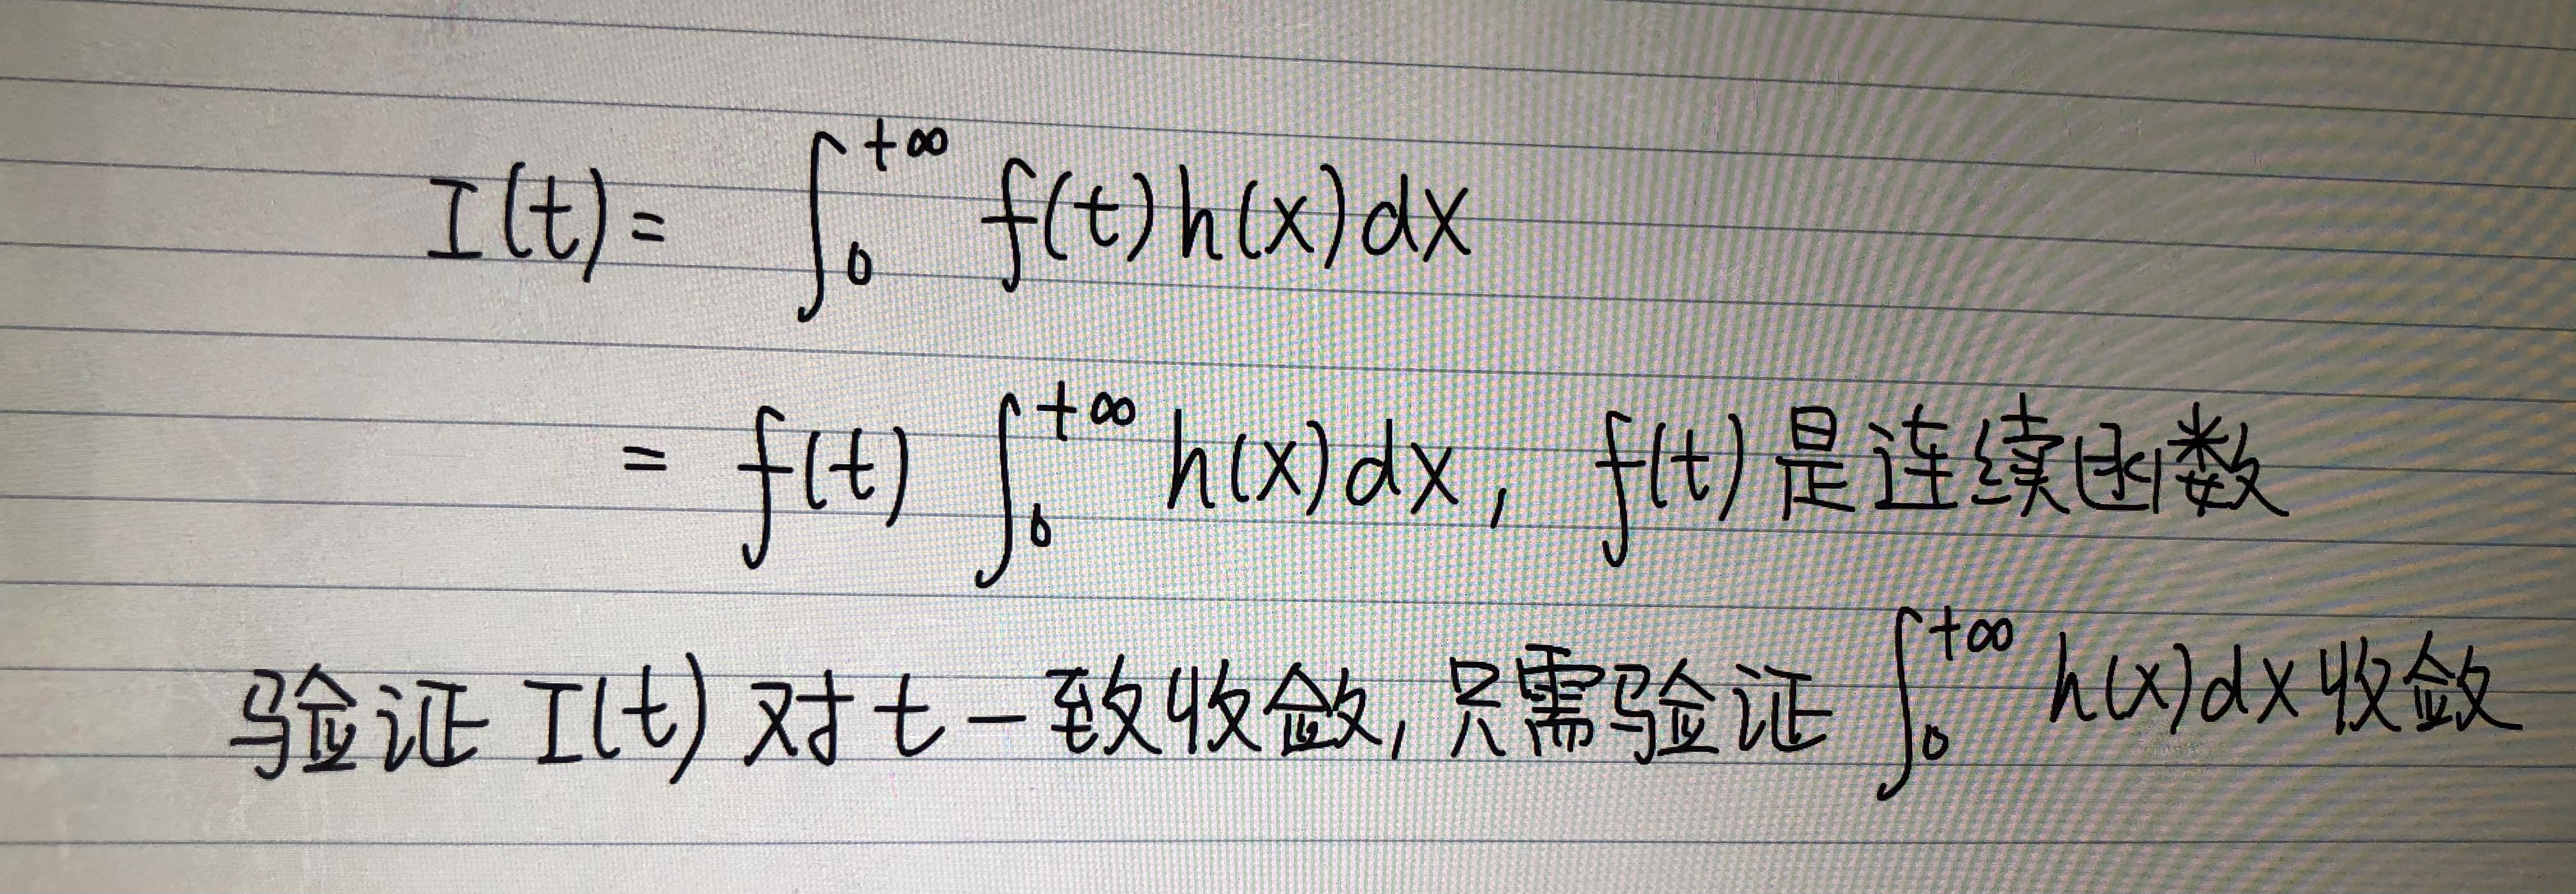 I(t) = ∫₀^{+∞} f(t)h(x)dx
= f(t) ∫₀^{+∞} h(x)dx, f(t)是连续函数
验证 I(t) 对 t 一致收敛, 只需验证 ∫₀^{+∞} h(x)dx 收敛